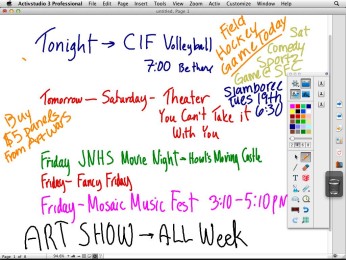 Activstudio 3 Professional File Edit Page Insert Tools View Activ Window Help
Untitled, Page 1
Tonight → CIF Volleyball
7:00 Be there
Field
Hockey
Game Today
Sat
Comedy
Sportz
Game @ SFZ
Slamboree
Tues 19th
6:30
Tomorrow — Saturday - Theater
You Can't Take it
With You
Buy
$5 panels
from Art War
Friday JNHS Movie Night → Howl's Moving Castle
Friday - Fancy Fridays
Friday - Mosaic Music Fest 3:10 - 5:10 PM
ART SHOW → ALL Week